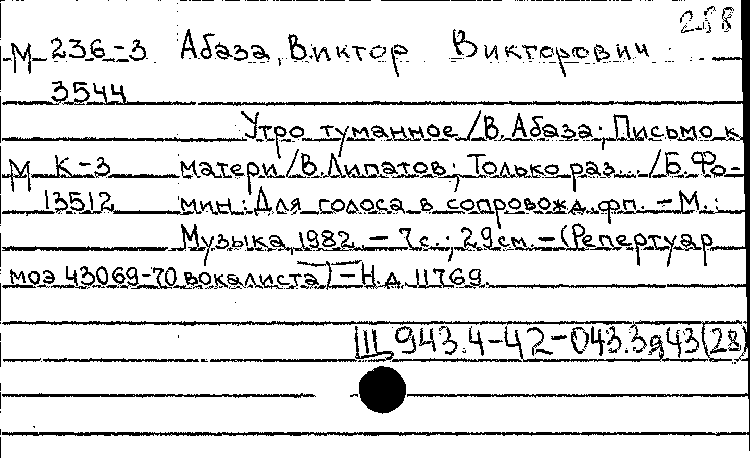 288
М 236-3 Абаза, Виктор Викторович
3544
Утро туманное /В. Абаза; Письмо к
М К-3 матери /В. Липатов; Только раз... /Б. Фо-
13512 мин: Для голоса в сопровожд. фп. - М.:
Музыка, 1982. - 7с.; 29см. - (Репертуар
моэ 43069-70 вокалиста) - Н.д. 11769.
Ш 943.4-42-043.3я43(28)